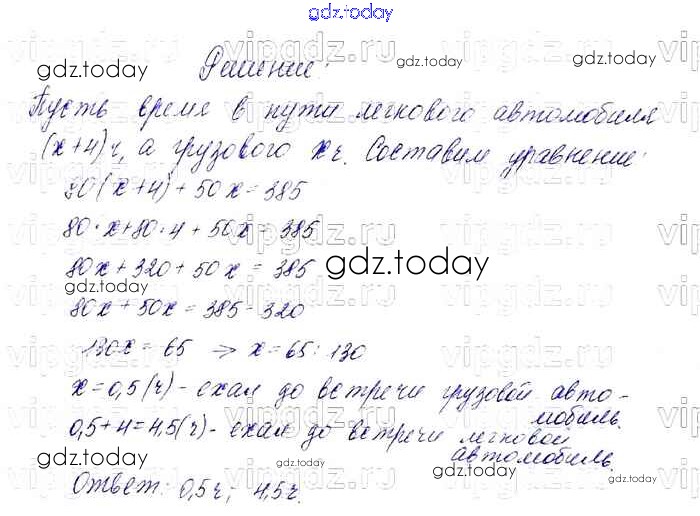 gdz.today
Решение:
Пусть время в пути легкового автомобиля
(x+4)ч, а грузового xч. Составим уравнение:
80(x+4)+50x=385
80·x+80·4+50x=385
80x+320+50x=385
80x+50x=385-320
130x=65 => x=65:130
x=0,5(ч)-ехал до встречи грузовой авто-
мобиль.
0,5+4=4,5(ч)-ехал до встречи легковой
автомобиль.
Ответ: 0,5ч; 4,5ч.
gdz.today
gdz.today
gdz.today
gdz.today
gdz.today
gdz.today
gdz.today
vipgdz.ru
vipgdz.ru
vipgdz.ru
vipgdz.ru